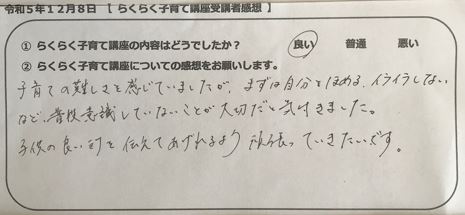 令和5年12月8日 【 らくらく子育て講座受講者感想 】
① らくらく子育て講座の内容はどうでしたか? 良い 普通 悪い
② らくらく子育て講座についての感想をお願いします。
子育ての難しさを感じていましたが、まずは自分をほめる、イライラしない
など、普段意識していないことが大切だと気付きました。
子供の良い所を伝えてあげれるよう頑張っていきたいです。